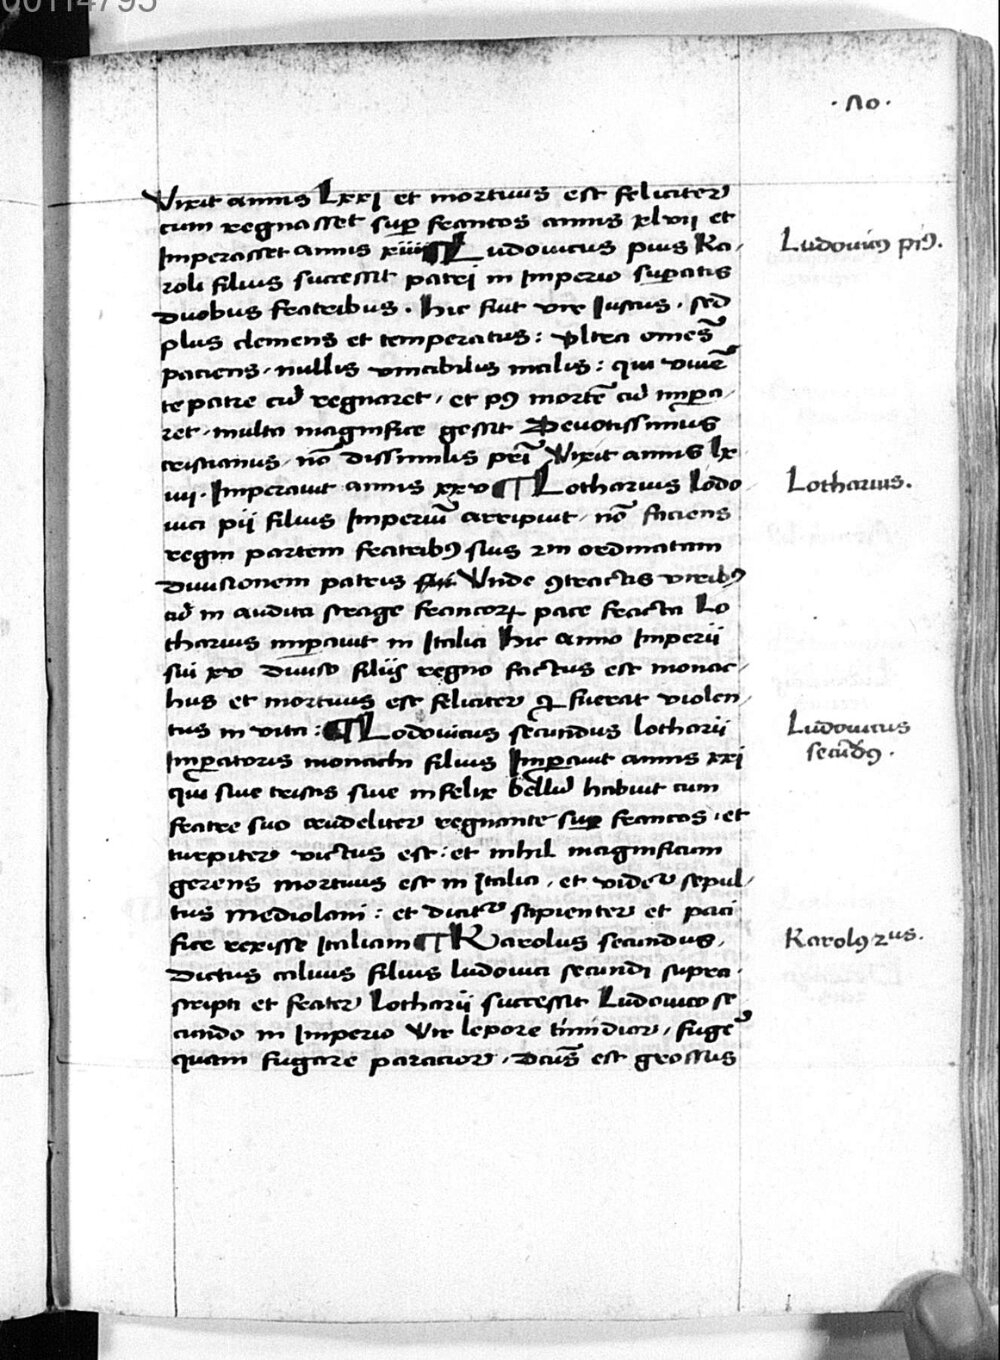 00114795
· 80 ·
Vixit annis Lxxi et mortuus est feliciter
cum regnasset sup francos annis xlvii et
Imperasset annis xiiii ¶ Ludovicus pius Ka,
roli filius successit patri in Imperio supatis
duobus fratribus . hic fuit vir Iustus . sed
plus clemens et temperatus : vltra omēs
paciens , nullis vincibilis malis : qui viuē
te patre cū regnaret , et p9 mortē cū impa,
ret , multa magnifice gessit Deuotissimus
cristianus , nō dissimilis prī Vixit annis lx
iiii . Imperauit annis xxv ¶ Lotharius lodo
uici pii filius Imperiū arripiut , nō faciens
regni partem fratrib9 suis 2m ordinatam
diuisionem patris Vnde 9tractis virib9
cū in audita strage francorꝝ pace fracta Lo
tharius impauit in Italia hic anno Imperii
sui xv diuiso filiis regno factus est monac,
hus et mortuus est feliciter q fuerat violen,
tus in vita : ¶ Lodouicus secundus lotharii
Impatoris monachi filius Impauit annis xxi
qui siue tristis siue infelix bellū habuit cum
fratre suo crudeliter regnante sup francos . et
turpiter victus est : et nihil magnificum
gerens mortuus est in Italia , et videt sepul,
tus mediolani : et dicitr sapienter et paci
fice rexisse Italiam ¶ Karolus secundus ,
dictus caluus filius ludouici secundi supra,
scripti et frater Lotharii successit Ludouico se
cundo in Imperio Vir lepore timidior , fuge
quam fugare paratior , dcūs est grossus
Ludovic9 pi9.
Lotharius.
Ludouicus
secūd9 .
Karol9 2us.